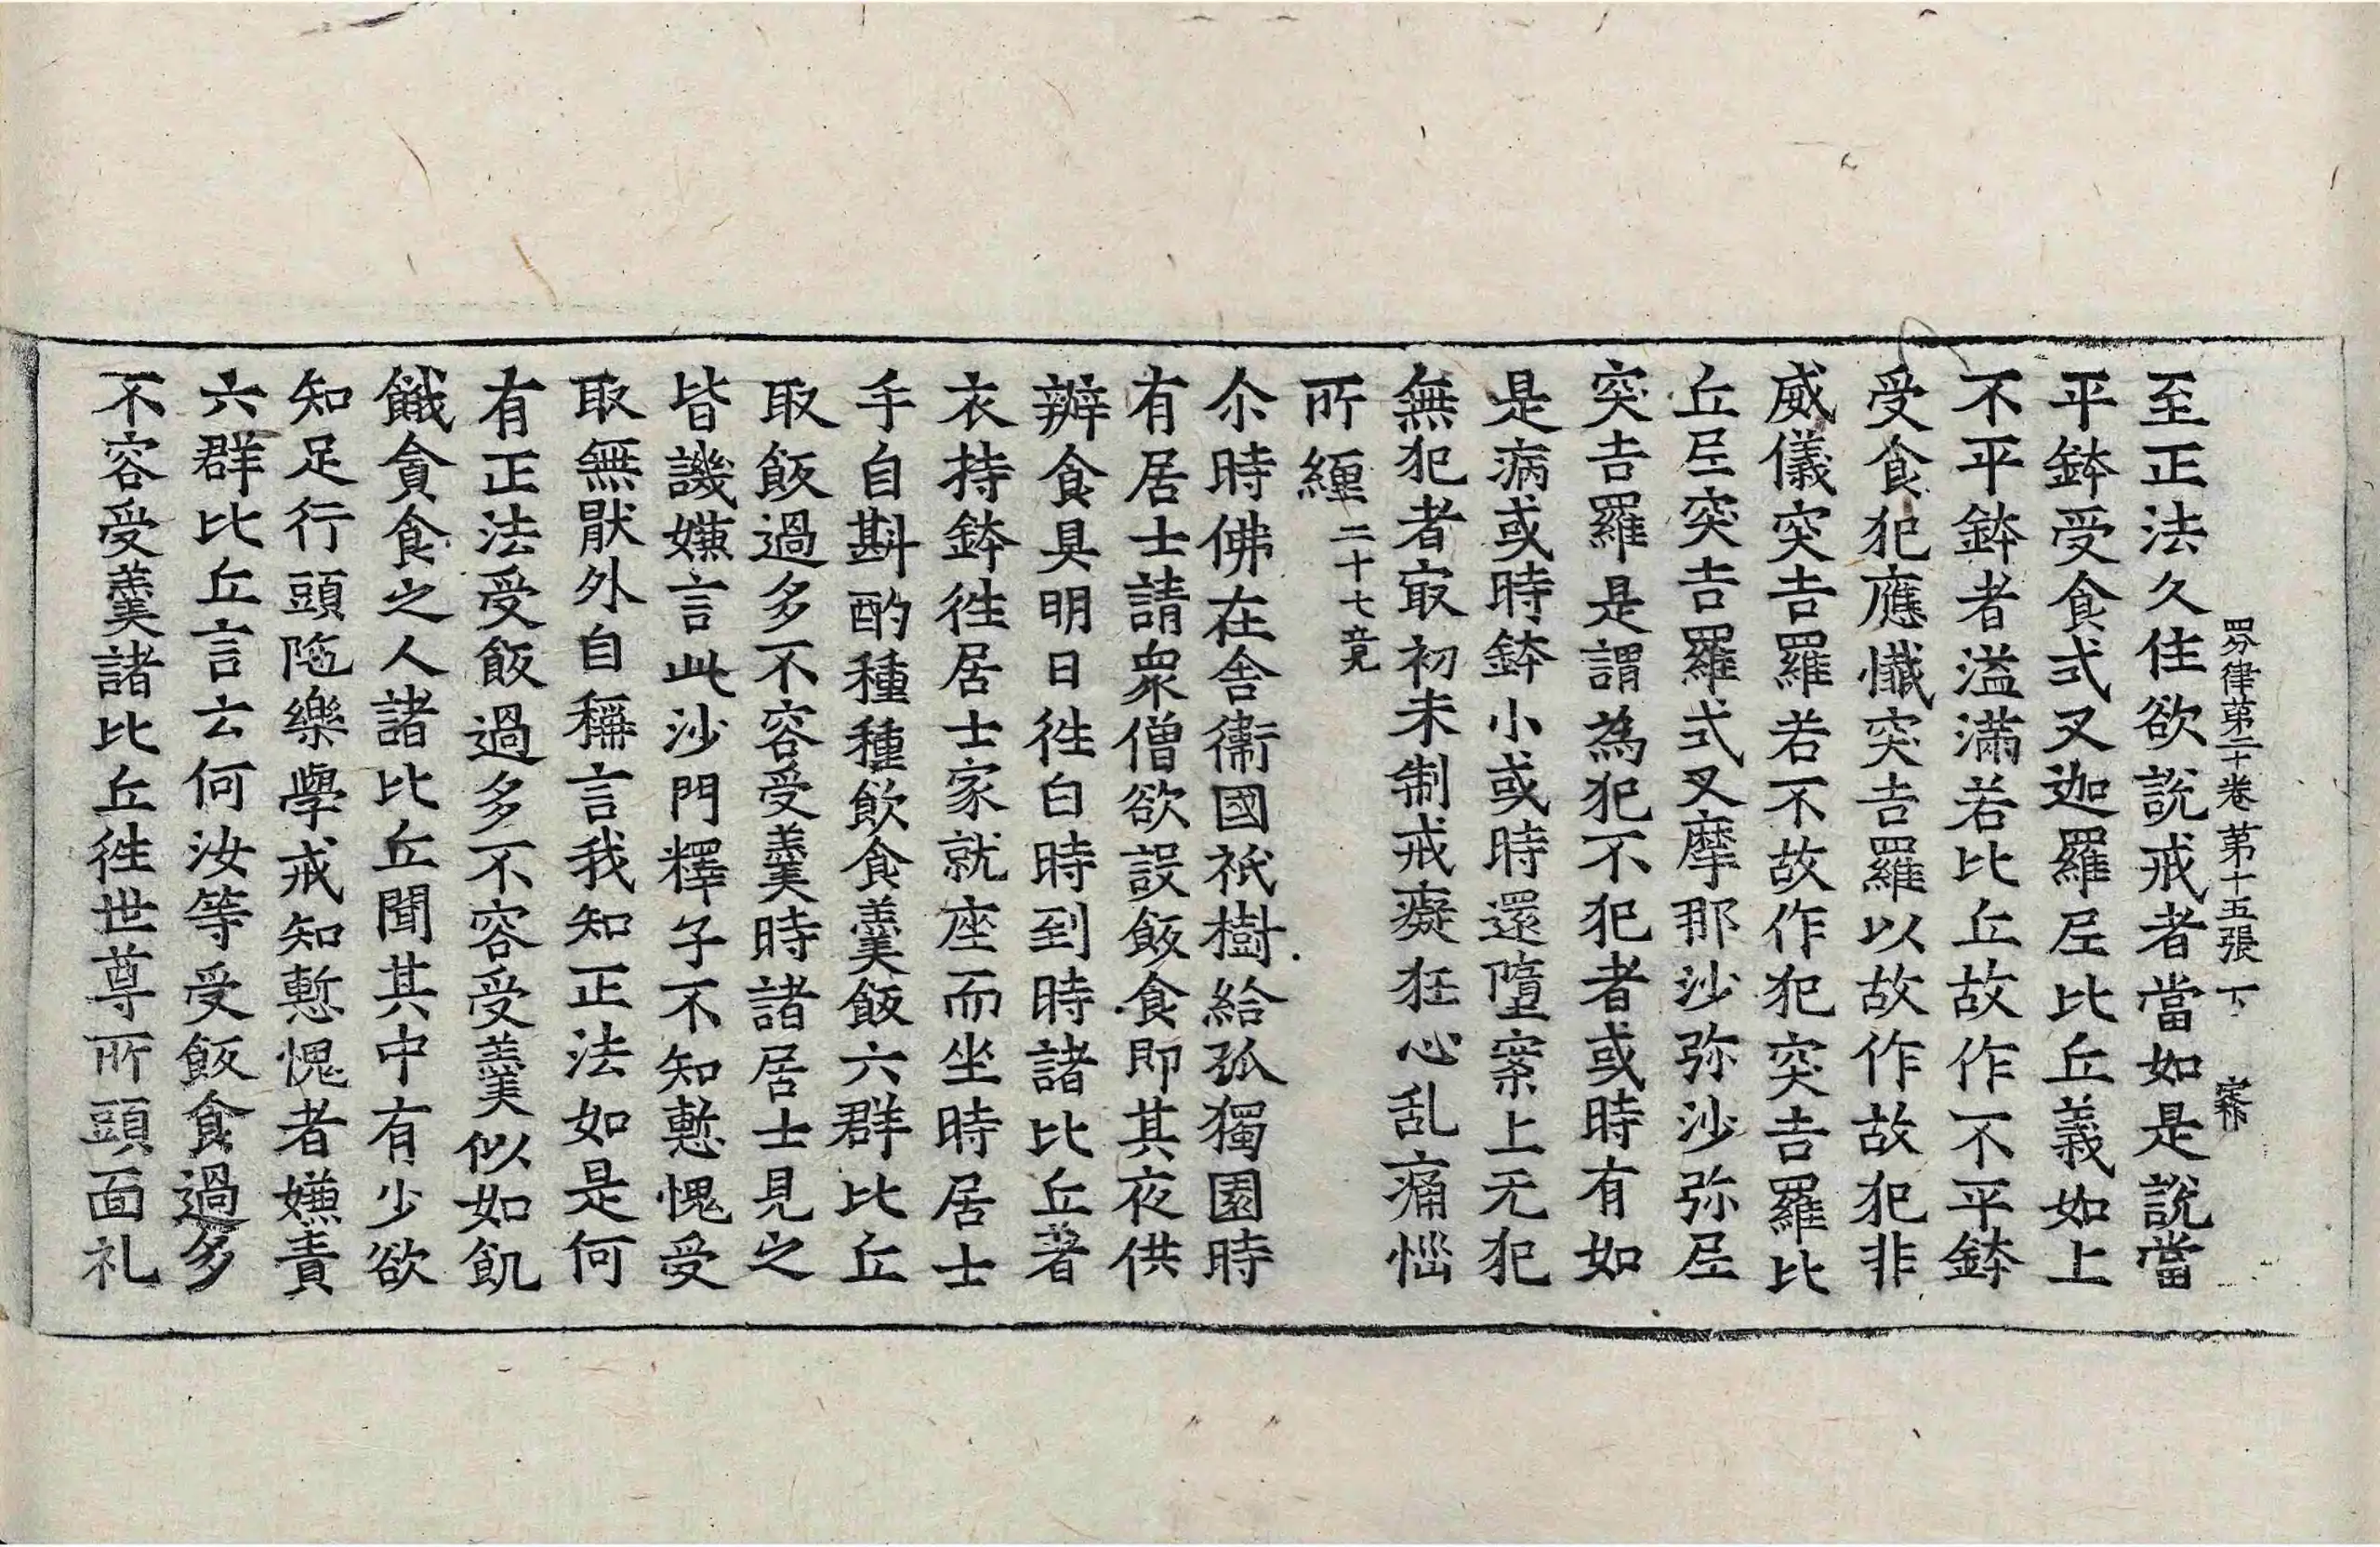 四分律第二十卷 第十五張 下
至正法久住欲說戒者當如是說當
平鉢受食式叉迦羅尼比丘義如上
不平鉢者溢滿若比丘故作不平鉢
受食犯應懺突吉羅以故作故犯非
威儀突吉羅若不故作犯突吉羅比
丘尼突吉羅式叉摩那沙弥沙弥尼
突吉羅是謂為犯不犯者或時有如
是病或時鉢小或時還墮案上无犯
無犯者㝡初未制戒癡狂心乱痛惱
所纏二十七竟
尒時佛在舍衞國祇樹給孤獨園時
有居士請衆僧欲設飯食即其夜供
辦食具明日徃白時到時諸比丘著
衣持鉢徃居士家就座而坐時居士
手自斟酌種種飲食羹飯六群比丘
取飯過多不容受羹時諸居士見之
皆譏嫌言此沙門釋子不知慙愧受
取無猒外自稱言我知正法如是何
有正法受飯過多不容受羹似如飢
餓貪食之人諸比丘聞其中有少欲
知足行頭陁樂學戒知慙愧者嫌責
六群比丘言云何汝等受飯食過多
不容受羹諸比丘徃世尊所頭面礼